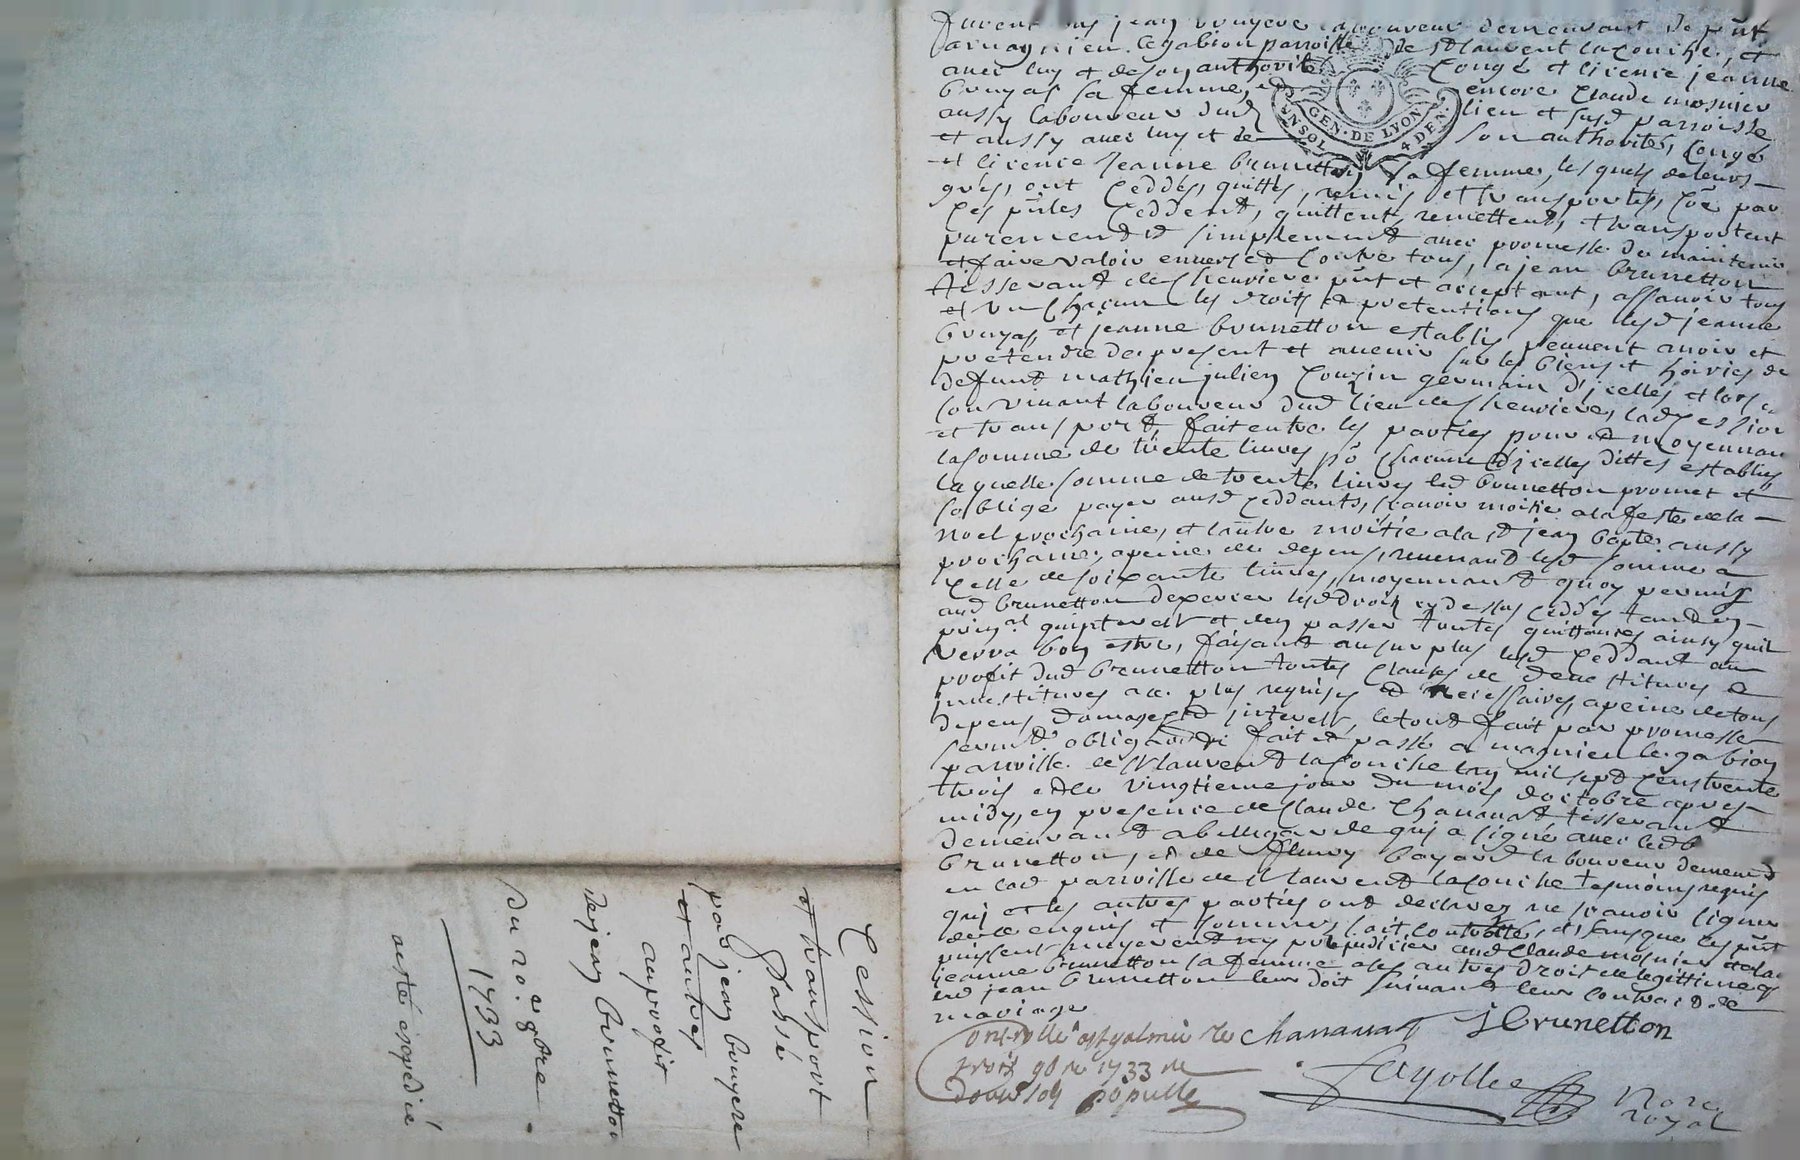 furent jean bruyere laboureur demeurant de put
a magnieu le gabion parroisse de st laurent la conche, et
avec luy et de son authorité congé et licence jeanne
bruyas sa femme, et encore Claude mosnier
aussy laboureur dud lieu et susd parroisse
et aussy avec luy et de son authorité, congé
et licence jeanne brunetton sa femme, lesquels de leurs
grés, ont ceddés, quittés, remis et transportés, coe par
ces pntes ceddent, quittent, remettent, et transportent
purement et simplement avec promesse de maintenir
et faire valoir envers et contre tous, a jean brunetton
tisserand de chenriere pnt et acceptant, assavoir tous
et un chacun les droits et pretentions que lesd jeanne
bruyas, et jeanne brunetton establis peuvent avoir et
pretendre de present et avenir sur les biens et hoiries de
defunt mathieu julien cousin germain d'icelles et lors
son vivant laboureur dud lieu de chenriere, lad cession
et transport fait entre les parties pour et moyennant
la somme de trente livres po chacune d'icelles dittes establies
laquelle somme de trente livres led brunetton promet et
soblige payer ausd ceddants, scavoir moitié a la feste de la
noel prochaine, et lautre moitié a la st jean bapte aussy
prochaine, a peine de depens, revenant lesd somme a
celle de soixante livres, moyennant quoy permis
aud brunetton dexercer lesd droits cy dessus ceddés tant en
prinal quinterest et den passer toutes quittances ainsy quil
verra bon estre, faisant au surplus lesd ceddant au
profit dud brunetton toutes clauses de devestitures et
investitures a ce plus requises et necessaires, a peine de tous
depens domages et interest, le tout fait par promesse
sermt obligaon fait et passé a magnieu le gabion
parroisse de st laurent la conche lan mil sept cens trente
trois et le vingtieme jour du mois doctobre apres
midy, en presence de claude chanavat tisserand
demeurant a bellegarde qui a signé avec led
brunetton, et de fleury bayard laboureur demeurt
en lad parroisse de st laurent la conche tesmoins requis
qui et les autres parties ont declarez ne scavoir signer
de ce enquis et sommés, soit controllé, et sans que les pnt
puissent prejudicier aud Claude mosnier et a la
jeanne brunetton sa femme a les autres droit de legittime q
led jean brunetton leur doit suivant leur contract de
mariage
Chanavat J Brunetton
Controllé a st galmier le
trois 9bre 1733 re
douze sols populle
Fayolle
Nore
royal
GEN. DE LYON.
4 DEN.
Cession
et transport
Passé
par jean bruyere
et autres
au proffit
de jean brunetton
du 20e 8bre
1733
a esté expedié